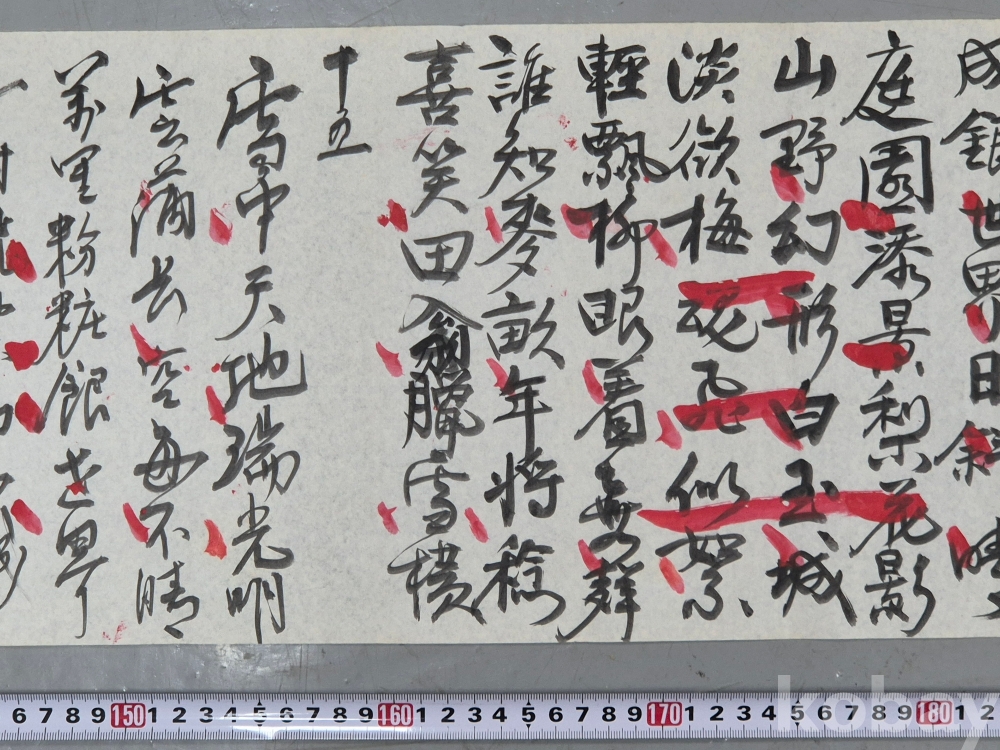 成銀世界日斜晴
庭園添景梨花影
山野幻形白玉城
淡欲梅魂飛似絮
輕飄柳眼着無聲
誰知麥畝年將稔
喜笑田翁臘雪横
十五
雪中天地瑞光明
雲滿長空每不晴
萬里粉粧銀世界
6 7 8 9 150 1 2 3 4 5 6 7 8 9 160 1 2 3 4 5 6 7 8 9 170 1 2 3 4 5 6 7 8 9 180 1 2
kobay